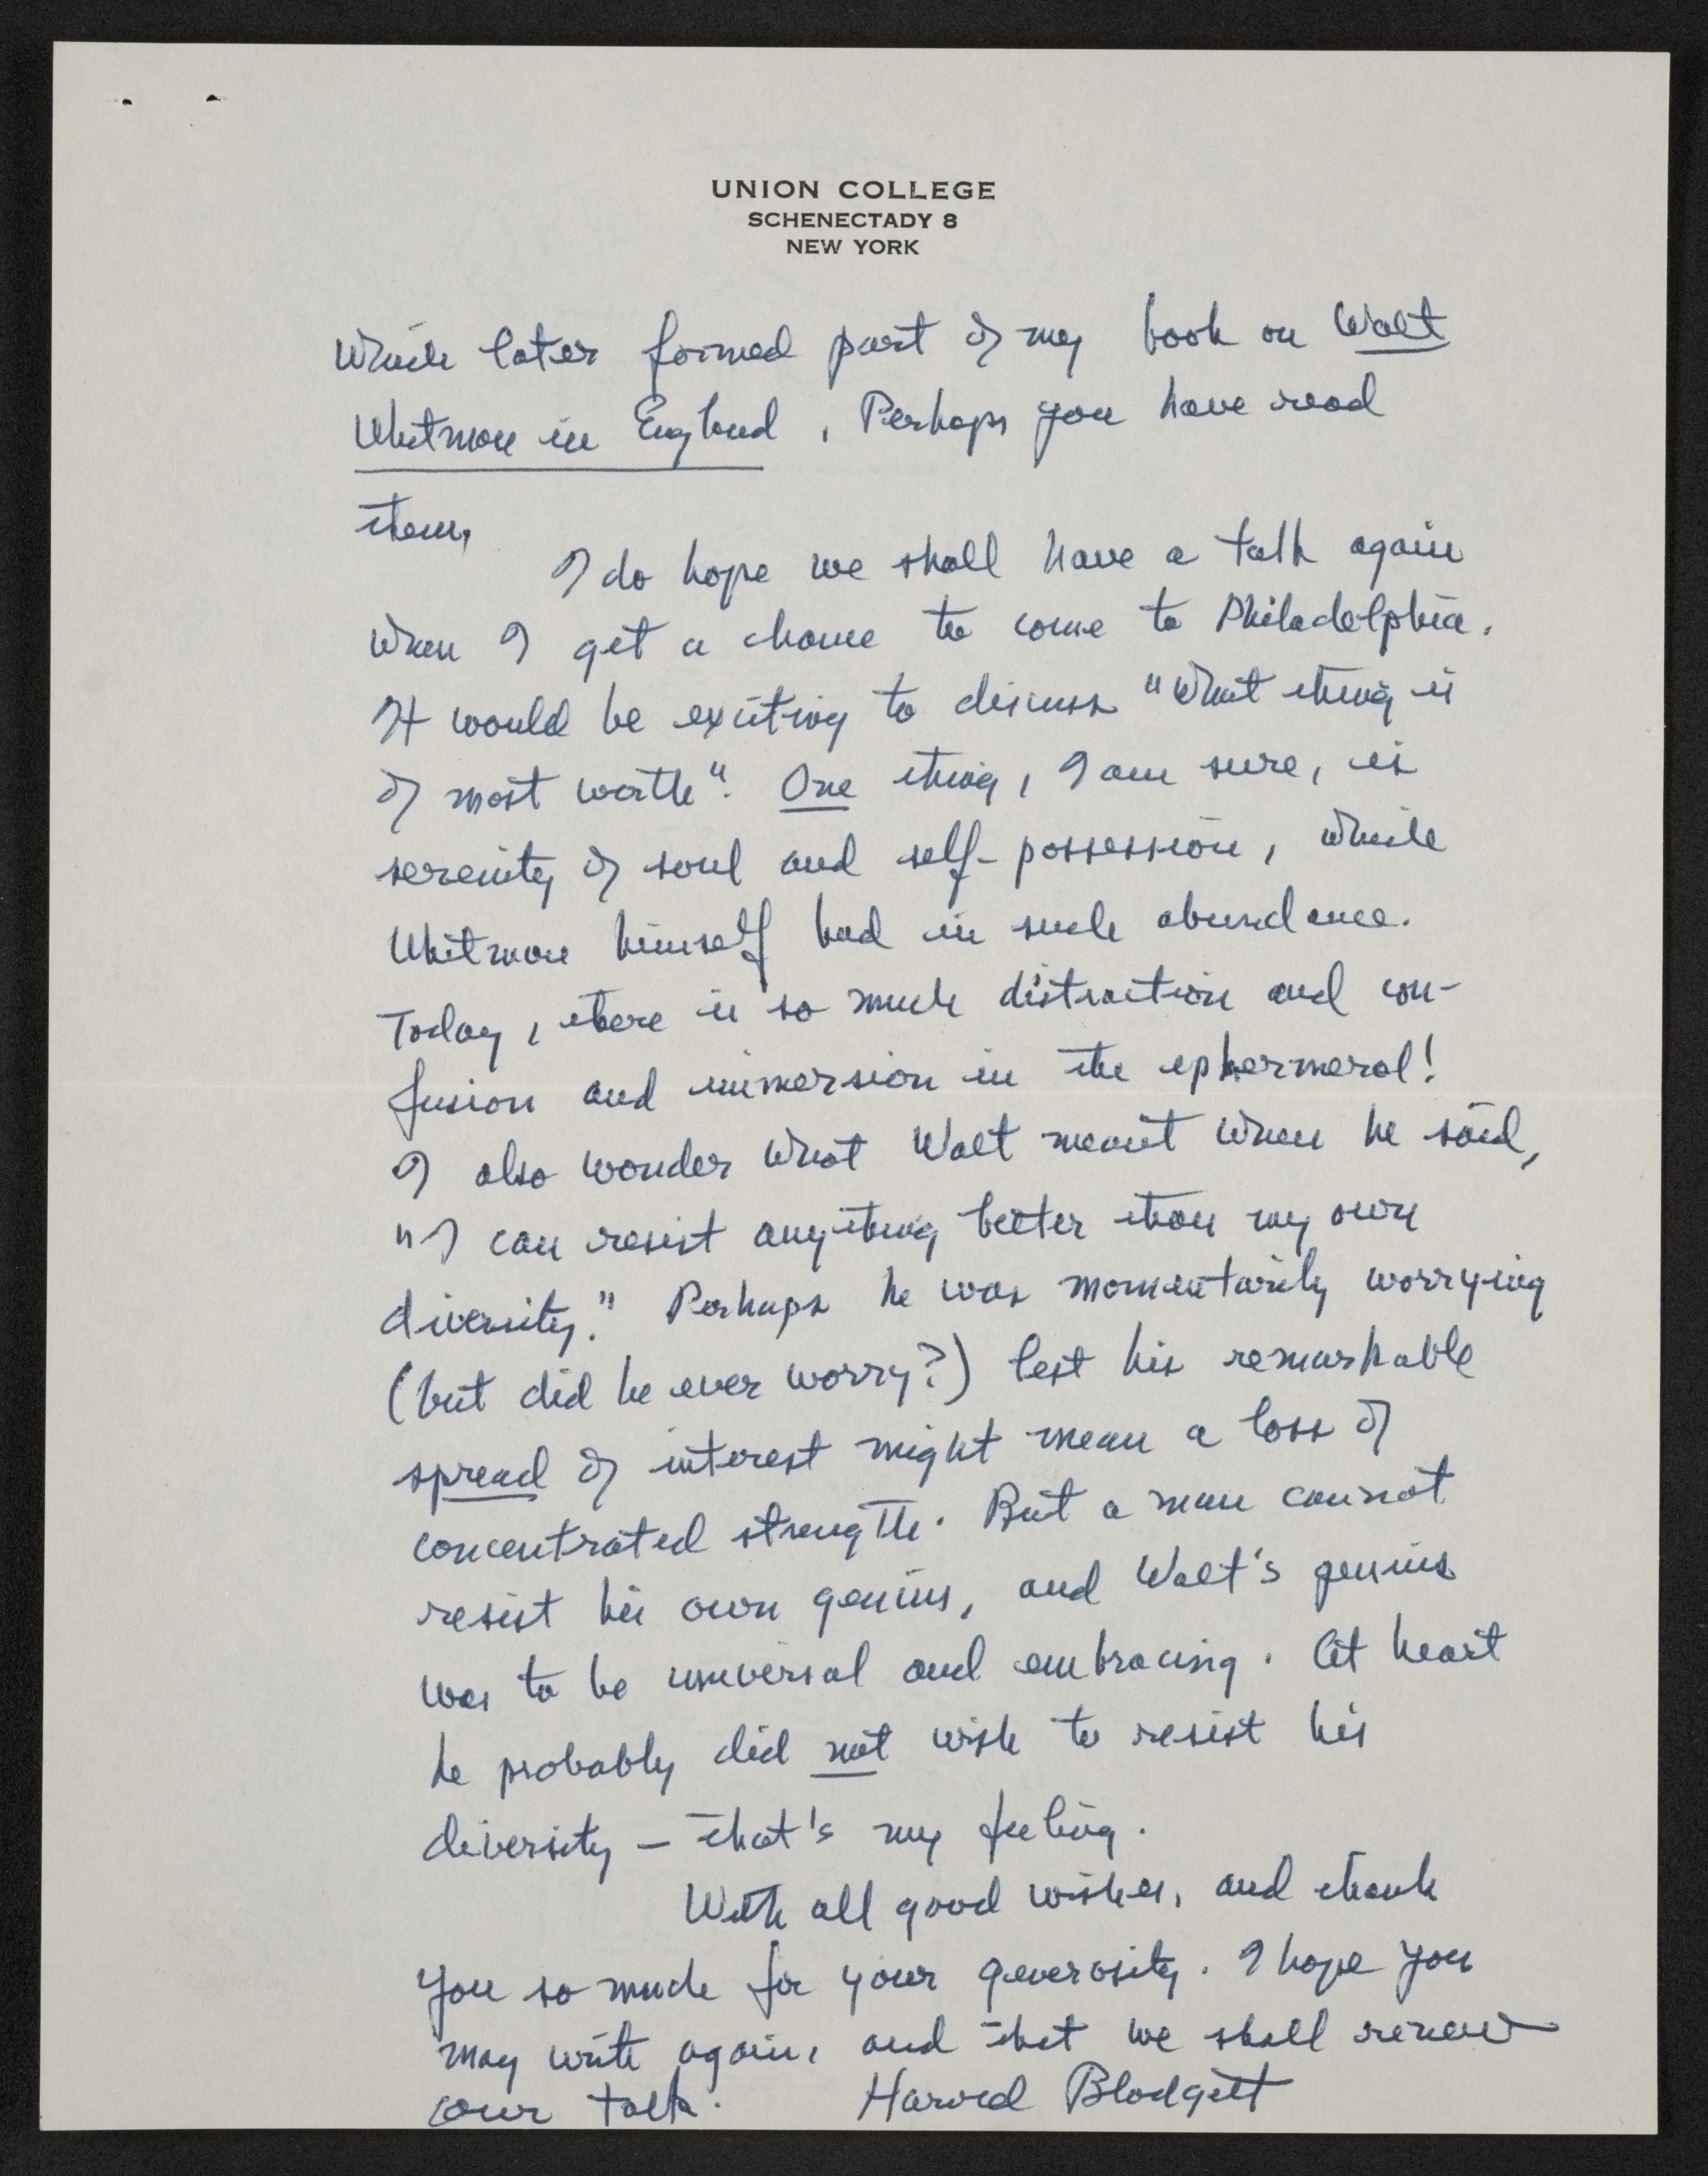 UNION COLLEGE
SCHENECTADY 8
NEW YORK
which later formed part of my book on Walt
Whitman in England. Perhaps you have read
them.
I do hope we shall have a talk again
when I get a chance to come to Philadelphia.
It would be exciting to discuss "what thing is
of most worth". One thing, I am sure, is
serenity of soul and self-possession, which
Whitman himself had in such abundance.
Today, there is so much distraction and con-
fusion and immersion in the ephermeral!
I also wonder what Walt meant when he said,
"I can resist anything better than my own
diversity." Perhaps he was momentarily worrying
(but did he ever worry?) lest his remarkable
spread of interest might mean a loss of
concentrated strength. But a man cannot
resist his own genius, and Walt's genius
was to be universal and embracing. At heart
he probably did not wish to resist his
diversity – that's my feeling.
With all good wishes, and thank
you so much for your generosity. I hope you
may write again, and that we shall renew
our talk. Harold Blodgett